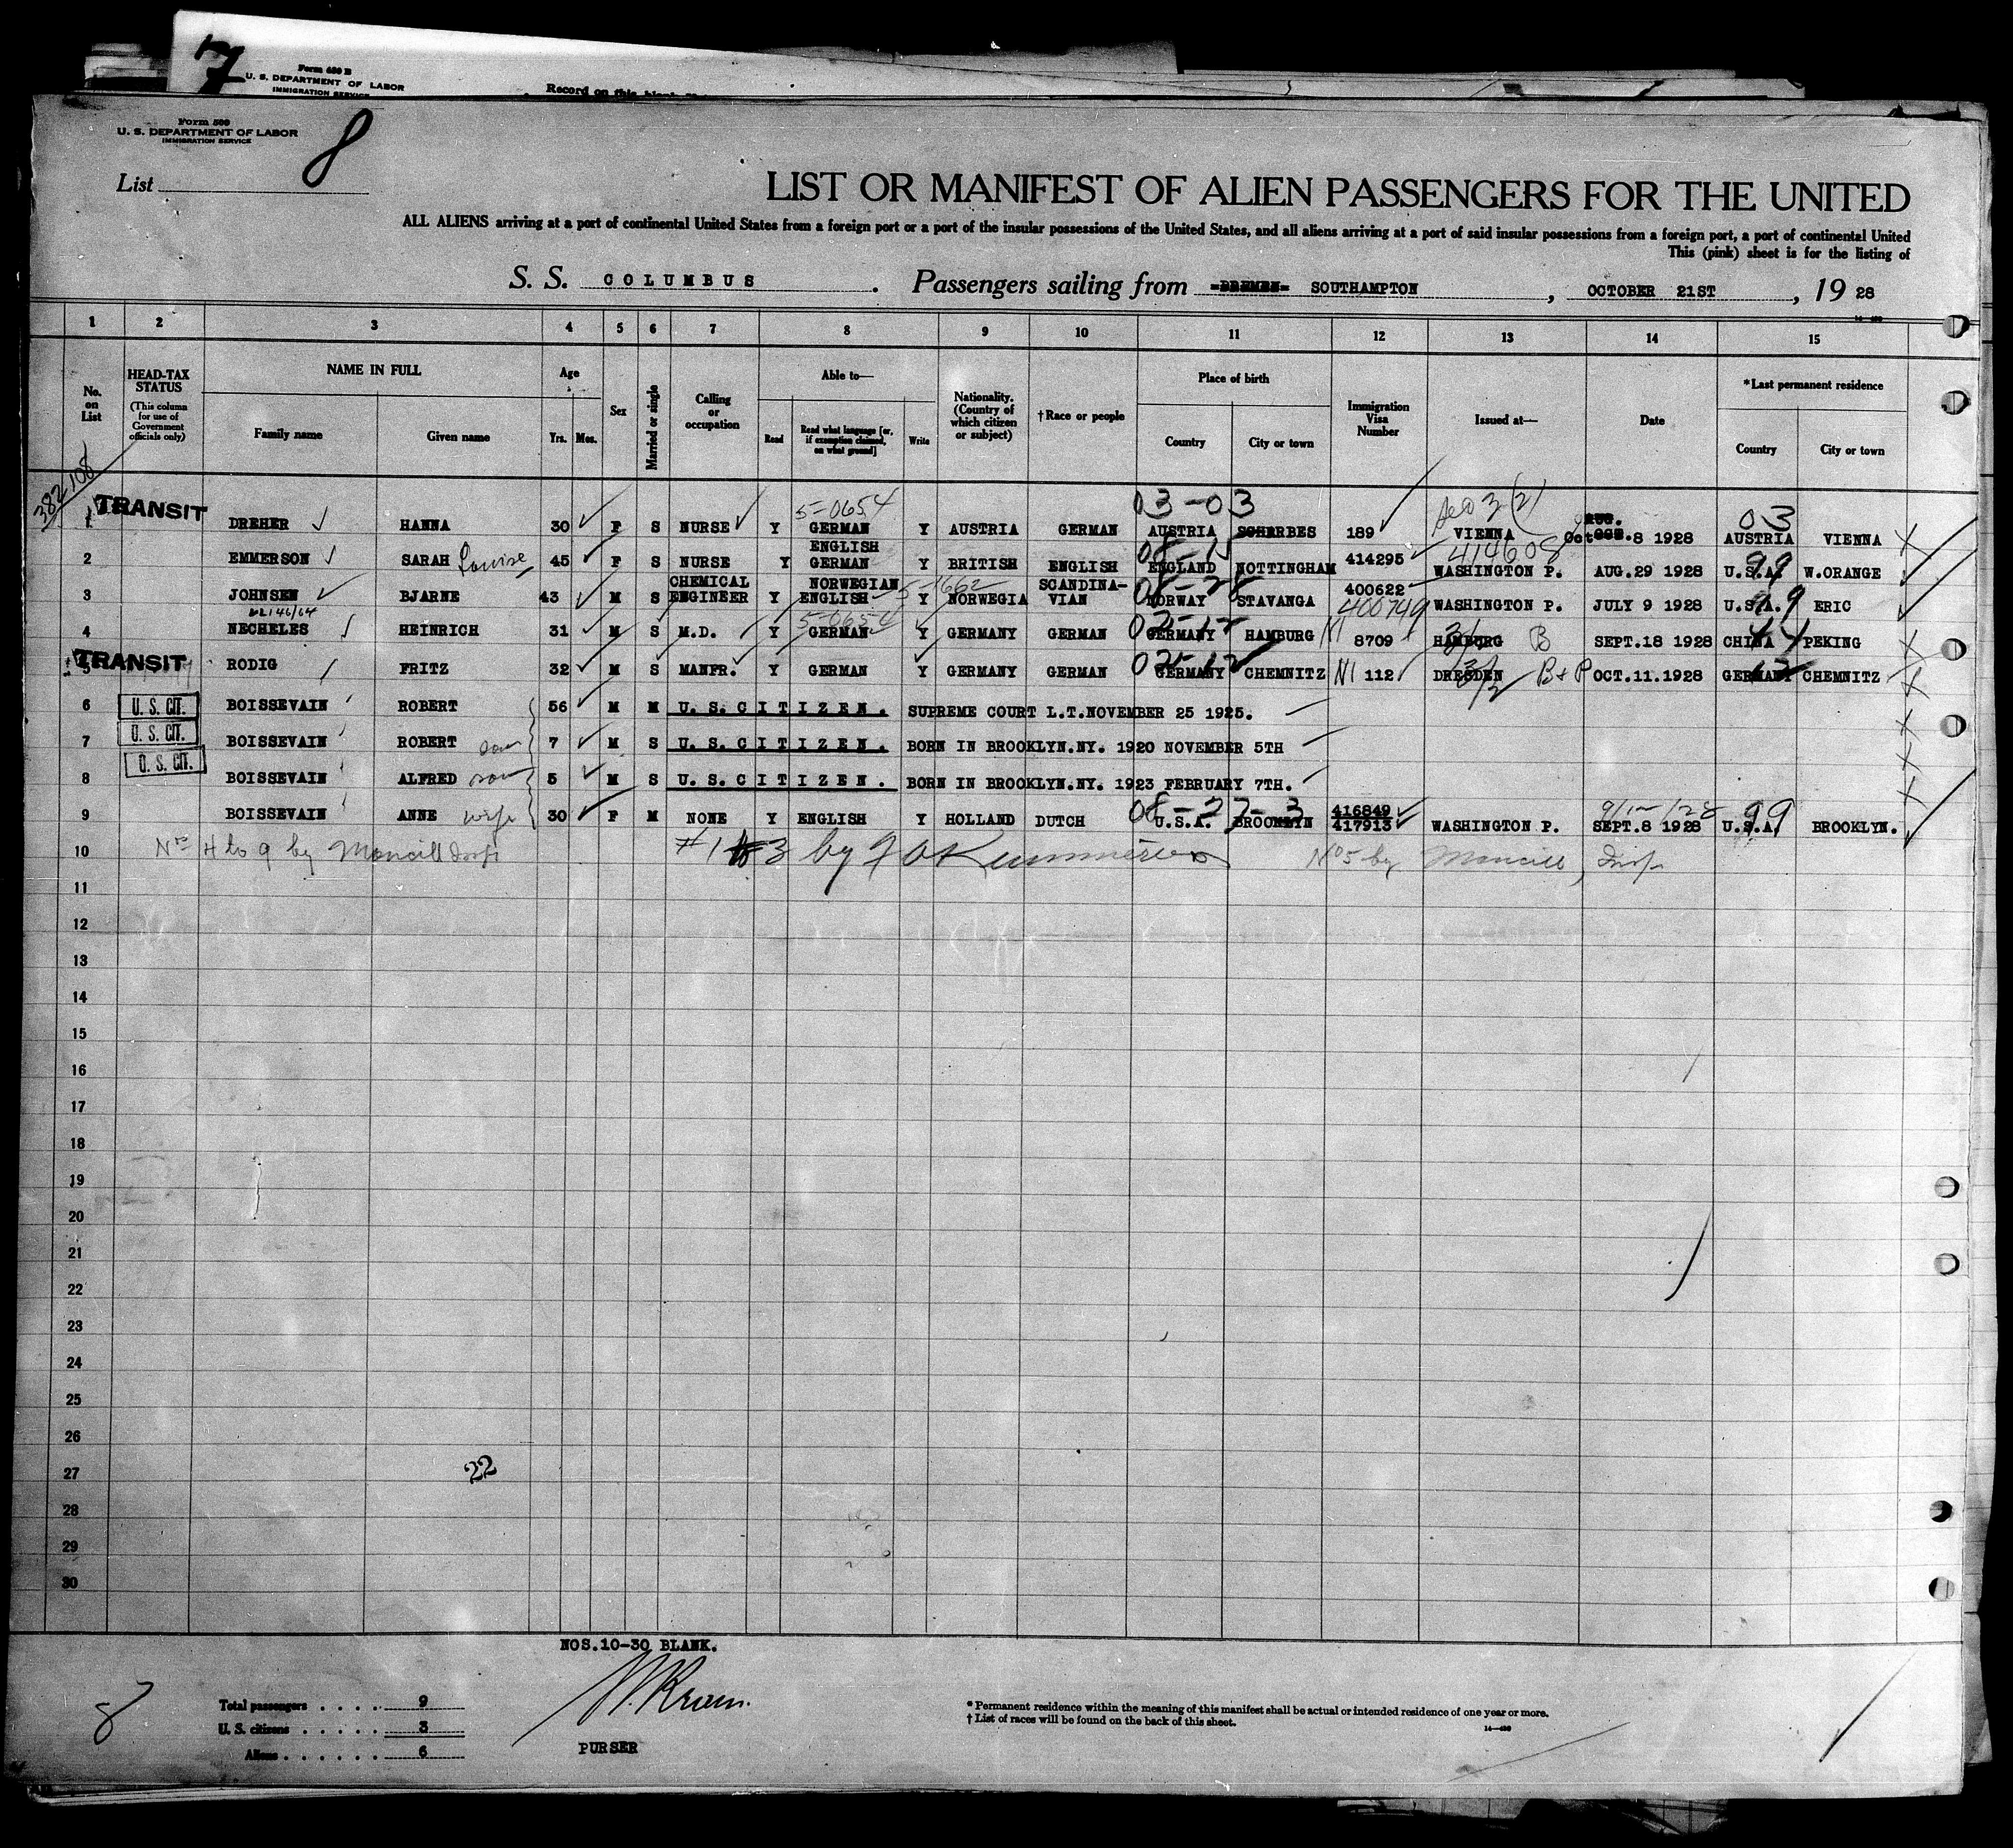 7
Form 630 B
U. S. DEPARTMENT OF LABOR
IMMIGRATION SERVICE
Record on this blank
Form 500
U. S. DEPARTMENT OF LABOR
IMMIGRATION SERVICE
8
List
LIST OR MANIFEST OF ALIEN PASSENGERS FOR THE UNITED
ALL ALIENS arriving at a port of continental United States from a foreign port or a port of the insular possessions of the United States, and all aliens arriving at a port of said insular possessions from a foreign port, a port of continental United
This (pink) sheet is for the listing of
S. S. COLUMBUS. Passengers sailing from BREMEN SOUTHAMPTON, OCTOBER 21ST, 19 28
1 2 3 4 5 6 7 8 9 10 11 12 13 14 15
No. on List
HEAD-TAX STATUS (This column for use of Government officials only)
NAME IN FULL
Family name Given name
Age
Yrs. Mos.
Sex
Married or single
Calling or occupation
Able to—
Read Read what language [or, if exemption claimed, on what ground] Write
Nationality. (Country of which citizen or subject)
†Race or people
Place of birth
Country City or town
Immigration Visa Number
Issued at—
Date
*Last permanent residence
Country City or town
382/108
TRANSIT 1 DREHER HANNA 30 F S NURSE Y 5-0654 GERMAN Y AUSTRIA GERMAN 03-03 AUSTRIA SCHARBES 189 VIENNA Oct. 8 1928 03 AUSTRIA VIENNA
2 EMMERSON SARAH Louise 45 F S NURSE Y ENGLISH GERMAN Y BRITISH ENGLISH ENGLAND NOTTINGHAM 414295 414608 WASHINGTON P. AUG.29 1928 99 U.S.A. W.ORANGE
3 JOHNSEN BJARNE 43 M S CHEMICAL ENGINEER Y NORWEGIAN ENGLISH 5-1662 Y NORWEGIA SCANDINA-VIAN 08-28 NORWAY STAVANGA 400622 400749 WASHINGTON P. JULY 9 1928 99 U.S.A. ERIC
4 NECHELES HEINRICH 31 M S M.D. Y 5-0654 GERMAN Y GERMANY GERMAN 02-12 GERMANY HAMBURG NI 8709 HAMBURG B SEPT.18 1928 44 CHINA PEKING
TRANSIT 5 RODIG FRITZ 32 M S MANFR. Y GERMAN Y GERMANY GERMAN 02-12 GERMANY CHEMNITZ NI 112 DRESDEN B+P OCT.11.1928 12 GERMANY CHEMNITZ
6 U. S. CIT. BOISSEVAIN ROBERT 56 M M U. S. C I T I Z E N. SUPREME COURT L.T.NOVEMBER 25 1925.
7 U. S. CIT. BOISSEVAIN ROBERT son 7 M S U. S. C I T I Z E N. BORN IN BROOKLYN.NY. 1920 NOVEMBER 5TH
8 U. S. CIT. BOISSEVAIN ALFRED son 5 M S U. S. C I T I Z E N. BORN IN BROOKLYN.NY. 1923 FEBRUARY 7TH.
9 BOISSEVAIN ANNE wife 30 F M NONE Y ENGLISH Y HOLLAND DUTCH 08-27-3 U.S.A. BROOKLYN 416849 417913 WASHINGTON P. 9/15/28 SEPT.8 1928 99 U.S.A. BROOKLYN.
10 Nos 4 to 9 by #1 to 3 by No 5 by
11
12
13
14
15
16
17
18
19
20
21
22
23
24
25
26
27 22
28
29
30
NOS.10-30 BLANK.
8
Total passengers . . . . 9
U. S. citizens . . . . . 3
Aliens . . . . . . 6
PURSER
* Permanent residence within the meaning of this manifest shall be actual or intended residence of one year or more.
† List of races will be found on the back of this sheet.